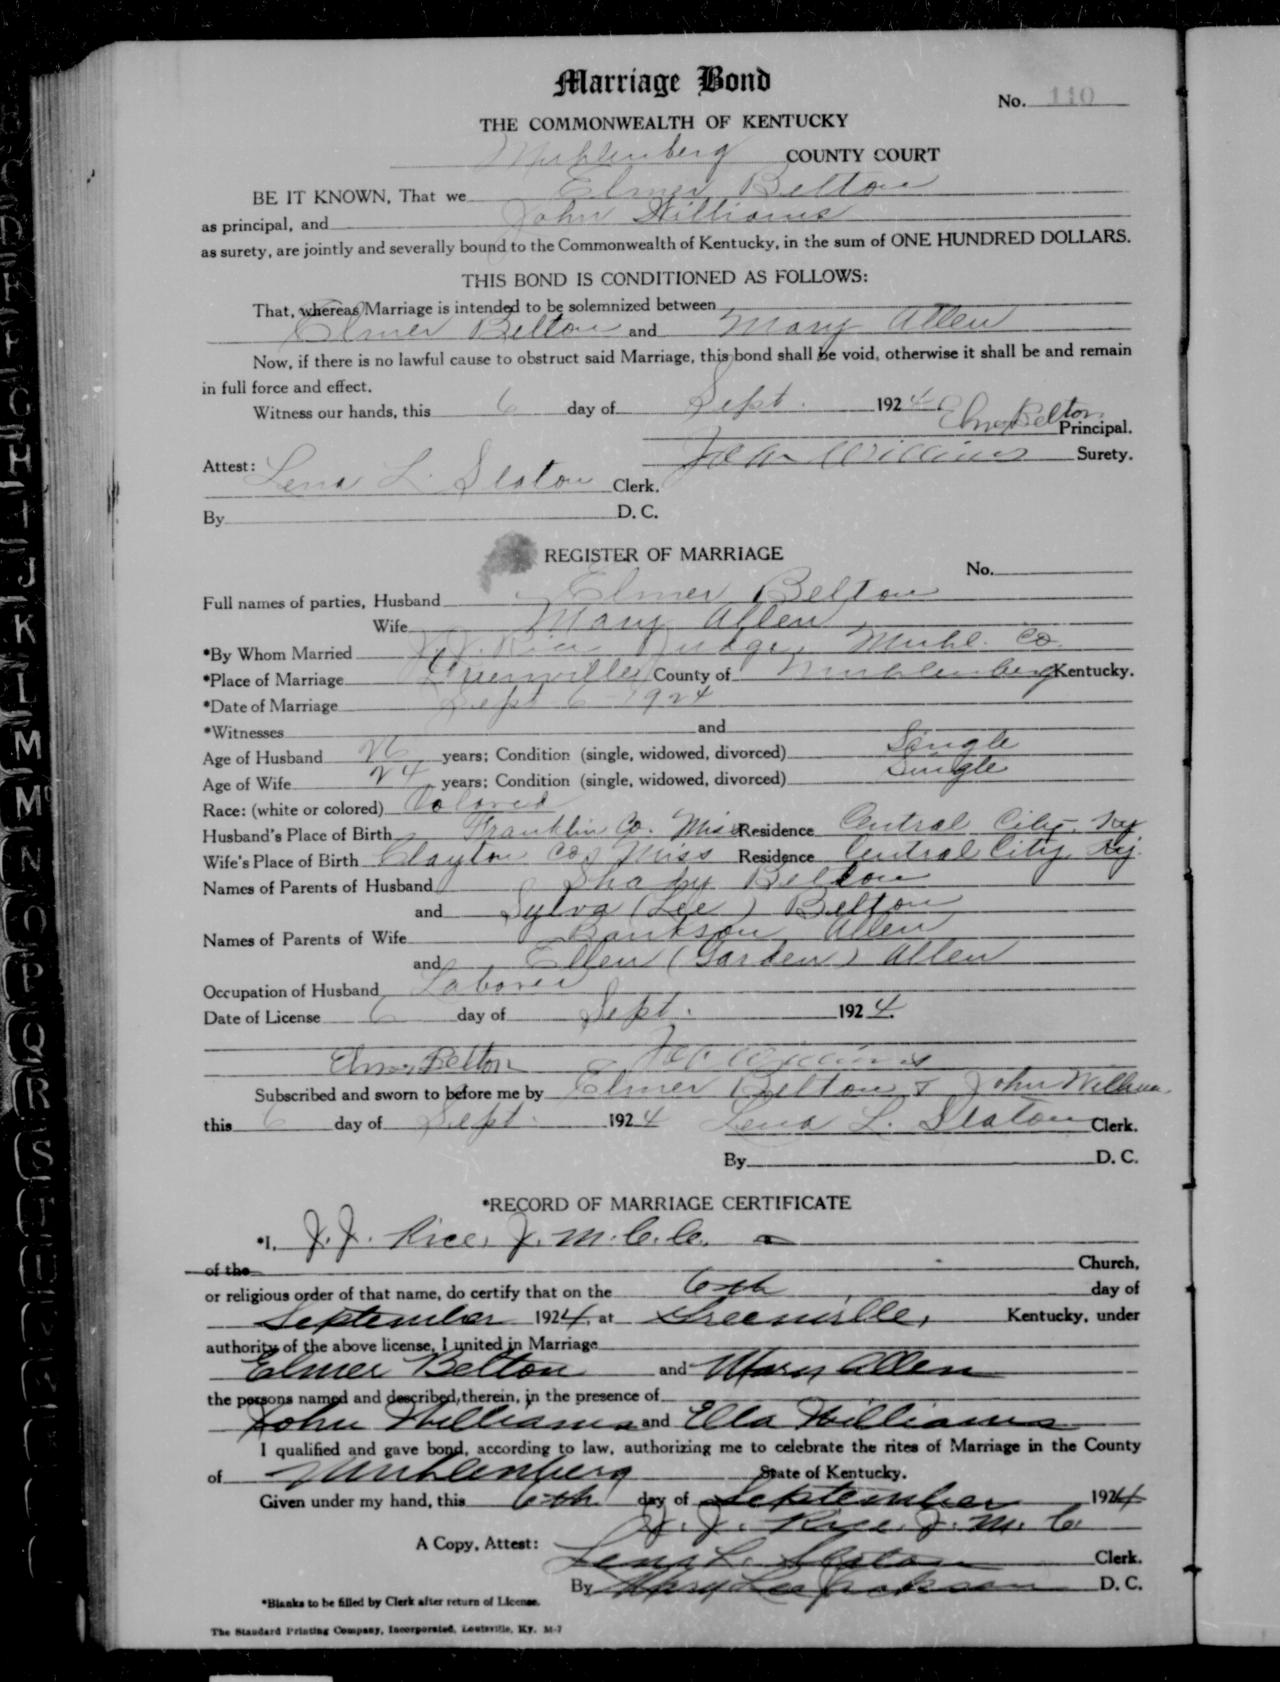 Marriage Bond
No. 110
THE COMMONWEALTH OF KENTUCKY
Muhlenberg COUNTY COURT
BE IT KNOWN, That we Elmer Belton
as principal, and John Williams
as surety, are jointly and severally bound to the Commonwealth of Kentucky, in the sum of ONE HUNDRED DOLLARS.
THIS BOND IS CONDITIONED AS FOLLOWS:
That, whereas Marriage is intended to be solemnized between
Elmer Belton and Mary Allen
Now, if there is no lawful cause to obstruct said Marriage, this bond shall be void, otherwise it shall be and remain
in full force and effect.
Witness our hands, this 6 day of Sept. 1924
Elmer Belton Principal.
John Williams Surety.
Attest: Lena L. Slaton Clerk.
By D. C.
REGISTER OF MARRIAGE
No.
Full names of parties, Husband Elmer Belton
Wife Mary Allen
*By Whom Married J.J. Rice Judge, Muhl. Co.
*Place of Marriage Greenville County of Muhlenberg Kentucky.
*Date of Marriage Sept 6 1924
*Witnesses and
Age of Husband 26 years; Condition (single, widowed, divorced) Single
Age of Wife 24 years; Condition (single, widowed, divorced) Single
Race: (white or colored) Colored
Husband's Place of Birth Franklin Co. Miss Residence Central City, Ky
Wife's Place of Birth Clayton Co, Miss Residence Central City Ky.
Names of Parents of Husband Shaby Belton
and Sylva (Lee) Belton
Names of Parents of Wife Bankson Allen
and Ellen (Garden) Allen
Occupation of Husband Laborer
Date of License 6 day of Sept. 1924.
Elmer Belton John Williams
Subscribed and sworn to before me by Elmer Belton & John Williams.
this 6 day of Sept. 1924 Lena L. Slaton Clerk.
By D. C.
*RECORD OF MARRIAGE CERTIFICATE
*I, J.J. Rice, J.M.C.C. a
of the Church,
or religious order of that name, do certify that on the 6th day of
September 1924, at Greenville, Kentucky, under
authority of the above license, I united in Marriage
Elmer Belton and Mary Allen
the persons named and described, therein, in the presence of
John Williams and Ella Williams
I qualified and gave bond, according to law, authorizing me to celebrate the rites of Marriage in the County
of Muhlenberg State of Kentucky.
Given under my hand, this 6th day of September 1924
J. J. Rice. J. M. C.
A Copy, Attest: Lena L. Slaton Clerk.
By Mary Lee Jackson D. C.
*Blanks to be filled by Clerk after return of License.
The Standard Printing Company, Incorporated, Louisville, Ky. M-7